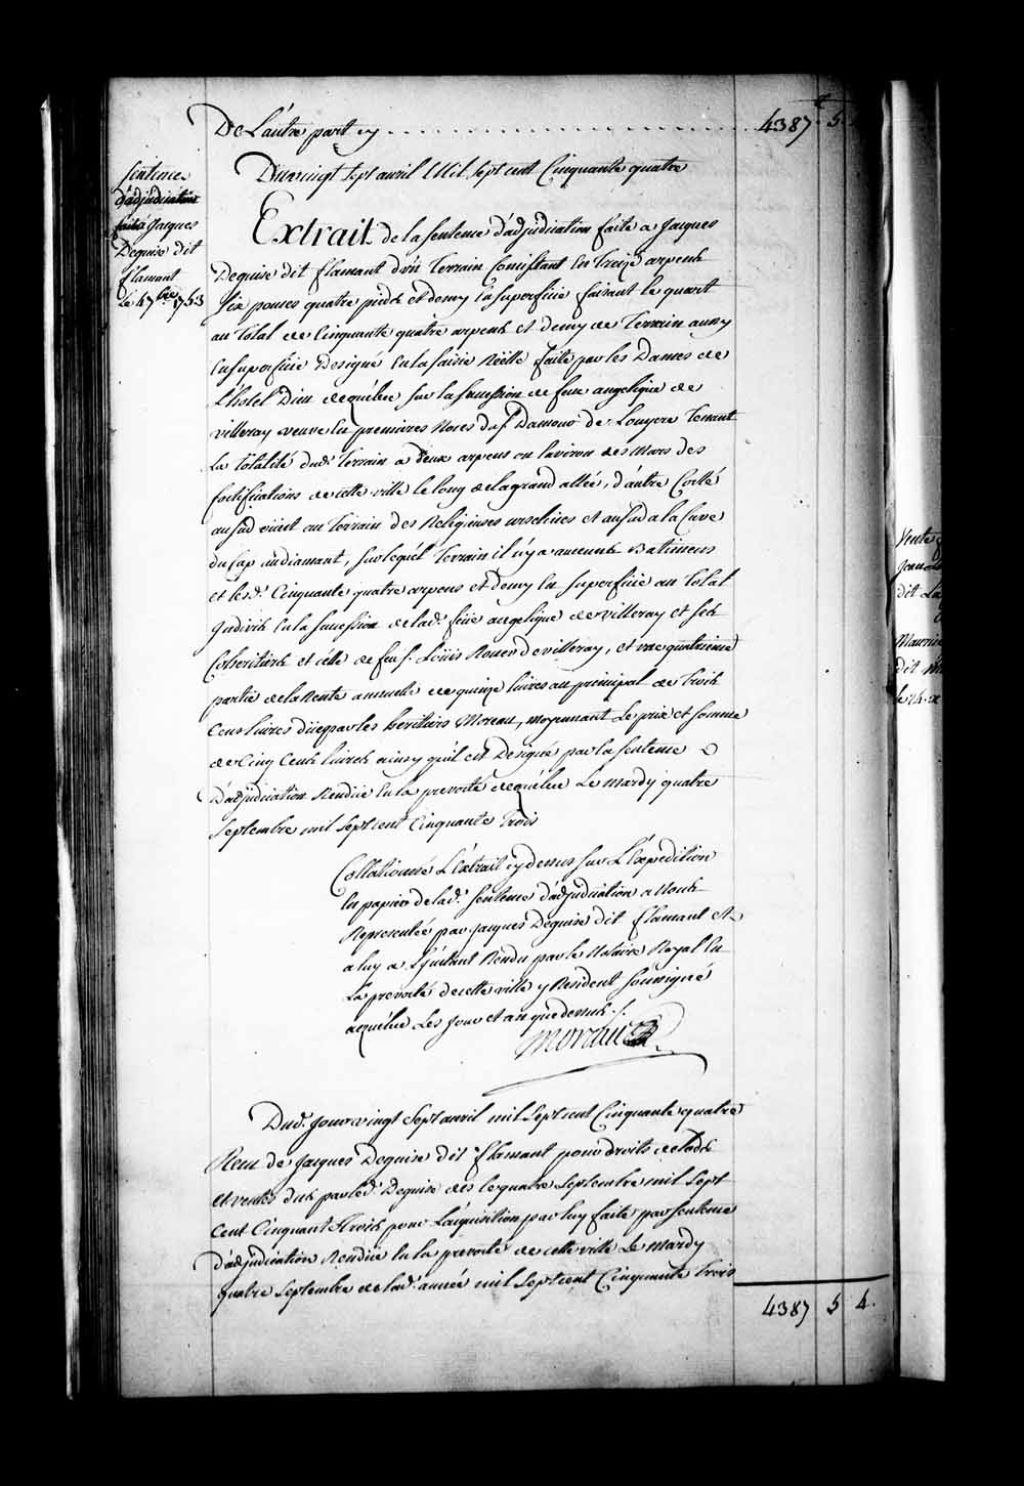 De L'autre part cy . . . . . . . . . . . . . . . . . . . . . . 4387. 5.
Sentence d'adjudication faite à Jacques Deguise dit flamant le 4 7bre 1753
Du vingt sept avril Mil sept cent Cinquante quatre
Extrait de la sentence d'adjudication faite a Jacques
Deguise dit flamant d'un Terrain Consistant en Treize arpents
Six pouces quatre pieds et demy en superficie faisant le quart
au Total de Cinquante quatre arpents et demy de Terrain aussy
en superficie Designé en la saisie Réelle faite par les Dames de
L'hotel Dieu de quebec sur la succession de feue angelique de
villeray veuve en premieres Noces du S. Damour de Louyere Tenant
La Totalité dud. Terrain a deux arpens ou environ des Murs des
fortifications de cette ville le long de la grand allée, d'autre Costé
au sud ouest au Terrain des Religieuses urselines et au sud a la Cime
du Cap au diamant, sur lequel Terrain il n'y a aucuns Batimens
et lesd. Cinquante quatre arpens et demy en superficie au Total
Indivis en la succession de lad. feüe angelique de villeray et ses
Coheritiers et celle de feu S. Loüis Rouer de villeray, et une quatrieme
partie de la Rente annuelle de quinze livres au principal de Trois
Cens livres düe par les heritiers Moreau, moyennant Le prix et somme
de Cinq Cents livres ainsy quil est Designé par la sentence
D'adjudication Rendüe en la prevosté de québec Le mardy quatre
Septembre mil sept cent Cinquante Trois
Collationné L'Extrait cy dessus sur L'Expedition
En papier de lad. Sentence d'adjudication a Nous
Representée par Jacques Deguise dit flamant et
a luy a L'jnstant Rendu par le Notaire Royal En
La prevosté de cette ville y Resident soussigné
a québec Les Jour et an que dessus ./.
Moreau
Dud. Jour vingt Sept avril mil Sept cent Cinquante quatre
Receu de Jacques Deguise dit flamant pour droits de lods
et ventes dus par led. Deguise des le quatre Septembre mil Sept
Cent Cinquant Trois pour L'acquisition par luy faite par sentence
D'adjudication Rendüe En la prevosté de cette ville Le Mardy
quatre Septembre de lad. année mil Sept cent Cinquante Trois
4387 5 4.
Vente
dit La
Maurice
dit